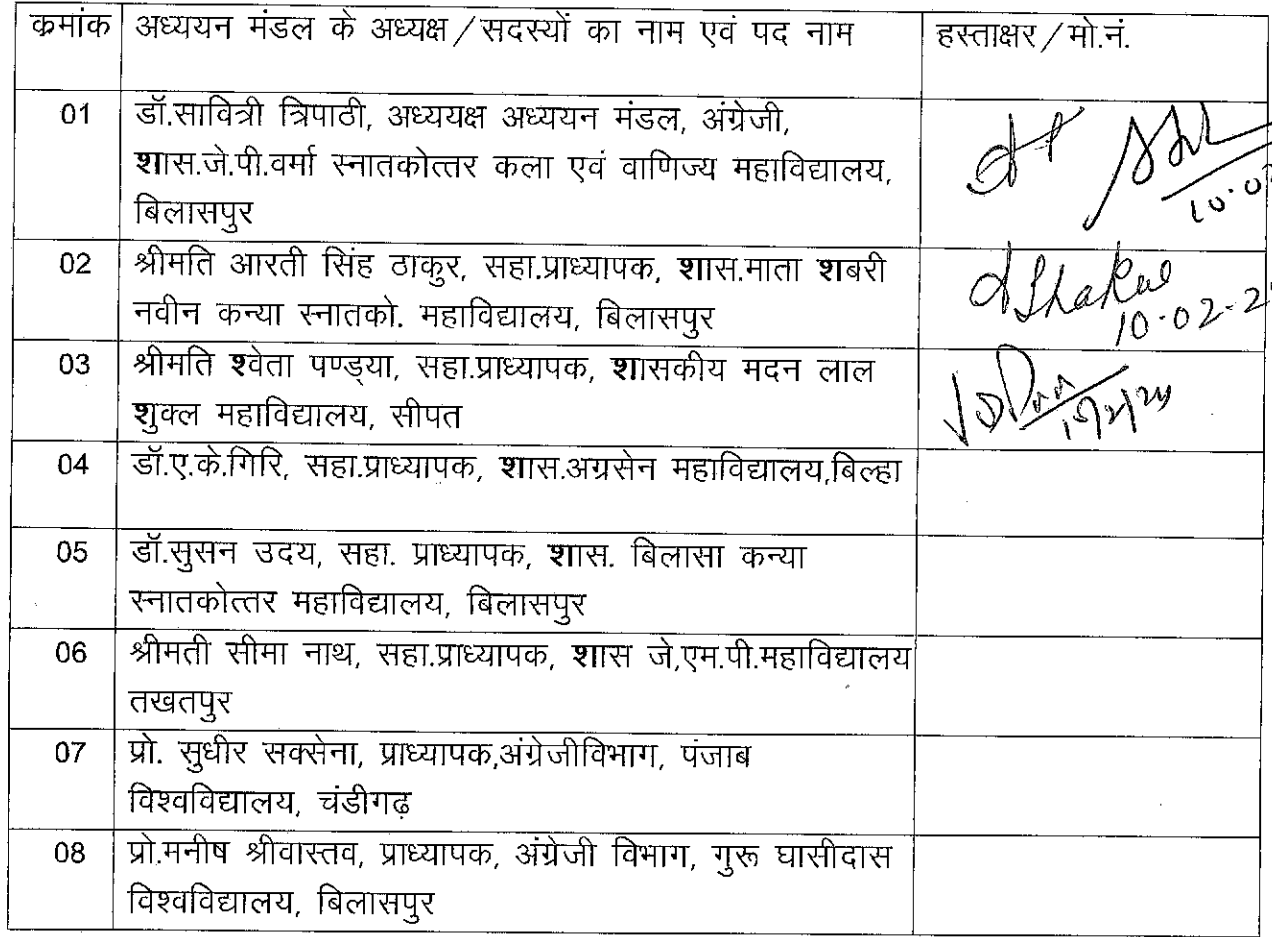 क्रमांक अध्ययन मंडल के अध्यक्ष/सदस्यों का नाम एवं पद नाम हस्ताक्षर/मो.नं.
01 डॉ.सावित्री त्रिपाठी, अध्ययक्ष अध्ययन मंडल, अंग्रेजी,
शास.जे.पी.वर्मा स्नातकोत्तर कला एवं वाणिज्य महाविद्यालय,
बिलासपुर
02 श्रीमति आरती सिंह ठाकुर, सहा.प्राध्यापक, शास.माता शबरी
नवीन कन्या स्नातको. महाविद्यालय, बिलासपुर
10.02-2
03 श्रीमति श्वेता पण्ड्या, सहा.प्राध्यापक, शासकीय मदन लाल
शुक्ल महाविद्यालय, सीपत
04 डॉ.ए.के.गिरि, सहा.प्राध्यापक, शास.अग्रसेन महाविद्यालय,बिल्हा
05 डॉ.सुसन उदय, सहा. प्राध्यापक, शास. बिलासा कन्या
स्नातकोत्तर महाविद्यालय, बिलासपुर
06 श्रीमती सीमा नाथ, सहा.प्राध्यापक, शास जे,एम.पी.महाविद्यालय
तखतपुर
07 प्रो. सुधीर सक्सेना, प्राध्यापक,अंग्रेजीविभाग, पंजाब
विश्वविद्यालय, चंडीगढ़
08 प्रो.मनीष श्रीवास्तव, प्राध्यापक, अंग्रेजी विभाग, गुरू घासीदास
विश्वविद्यालय, बिलासपुर